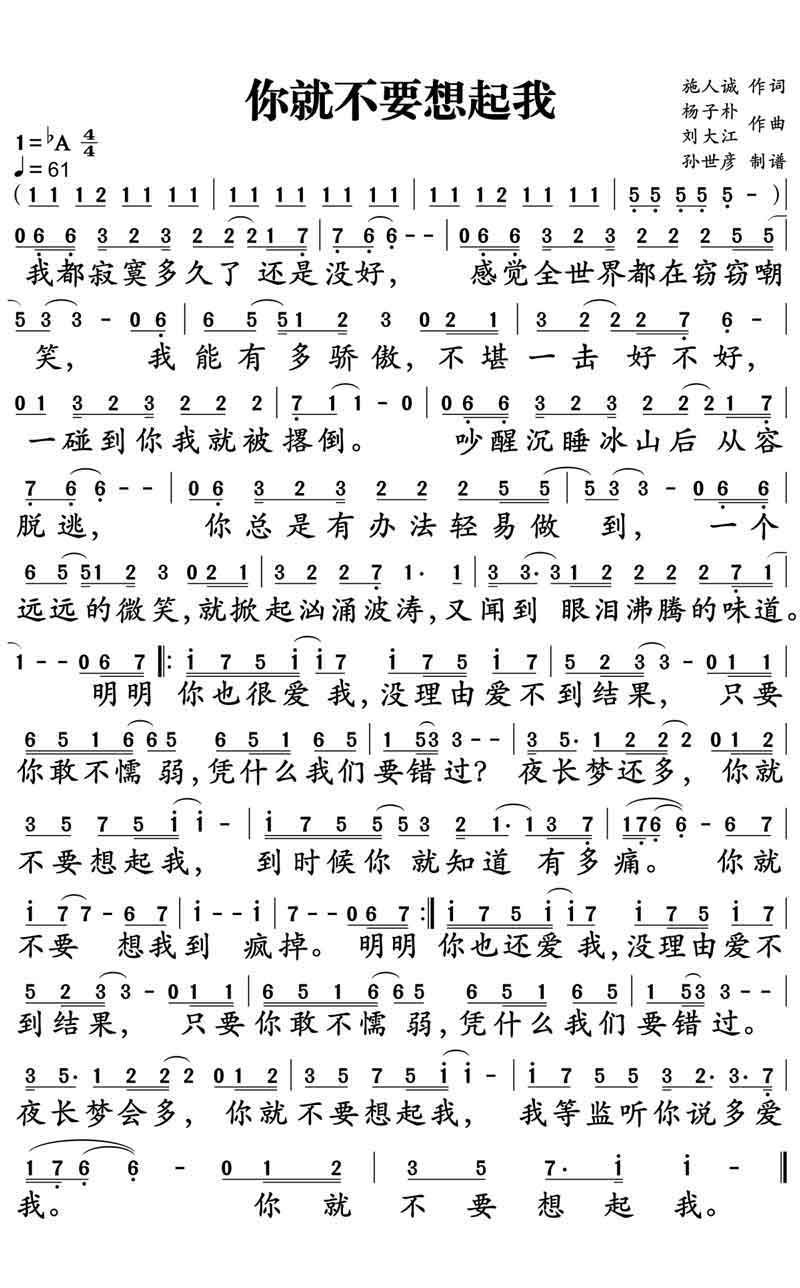 你就不要想起我
施人诚 作词
杨子朴
刘大江 作曲
孙世彦 制谱
1=♭A 4/4
♩=61
(1 1 1 2 1 1 1 1 | 1 1 1 1 1 1 1 | 1 1 1 2 1 1 | 5 5 5 5 5 - )|
0 6 6 3 2 3 2 2 2 1 7 | 7 6 6 - - | 0 6 6 3 2 3 2 2 2 5 5
我都寂寞多久了 还是没好, 感觉全世界都在窃窃嘲
5 3 3 - 0 6 | 6 5 5 1 2 3 0 2 1 | 3 2 2 2 7 6 - |
笑, 我能有多骄傲,不堪一击好不好,
0 1 3 2 3 2 2 2 | 7 1 1 - 0 | 0 6 6 3 2 3 2 2 2 1 7 |
一碰到你我就被撂倒。 吵醒沉睡冰山后从容
7 6 6 - - | 0 6 3 2 3 2 2 2 5 5 | 5 3 3 - 0 6 6 |
脱逃, 你总是有办法轻易做 到, 一个
6 5 5 1 2 3 0 2 1 | 3 2 2 7 1· 1 | 3 3· 3 1 2 2 2 2 7 1
远远的微笑,就掀起汹涌波涛,又闻到 眼泪沸腾的味道。
1 - - 0 6 7 ‖: i 7 5 i i 7 i 7 5 i 7 | 5 2 3 3 - 0 1 1 |
明明 你也很爱我,没理由爱不到结果, 只要
6 5 1 6 6 5 6 5 1 6 5 | 1 5 3 3 - - | 3 5· 1 2 2 2 0 1 2 |
你敢不懦 弱,凭什么我们要错过? 夜长梦还多, 你就
3 5 7 5 i i - | i 7 5 5 5 3 2 1· 1 3 7 | 1 7 6 6 - 6 7 |
不要想起我, 到时候你 就知道 有多痛。 你就
i 7 7 - 6 7 | i - i - | 7 - - 0 6 7 :‖ i 7 5 i i 7 i 7 5 i 7 |
不要 想我到 疯掉。明明 你也还爱我,没理由爱不
5 2 3 3 - 0 1 1 | 6 5 1 6 6 5 6 5 1 6 5 | 1 5 3 3 - - |
到结果, 只要你敢不懦 弱,凭什么我们要错过。
3 5· 1 2 2 2 0 1 2 | 3 5 7 5 i i - | i 7 5 5 3 2· 3· 7 |
夜长梦会多, 你就不要想起我, 我等监听你说多爱
1 7 6 6 - 0 1 2 | 3 5 7· i | i - - ‖
我。 你就 不 要 想 起 我。